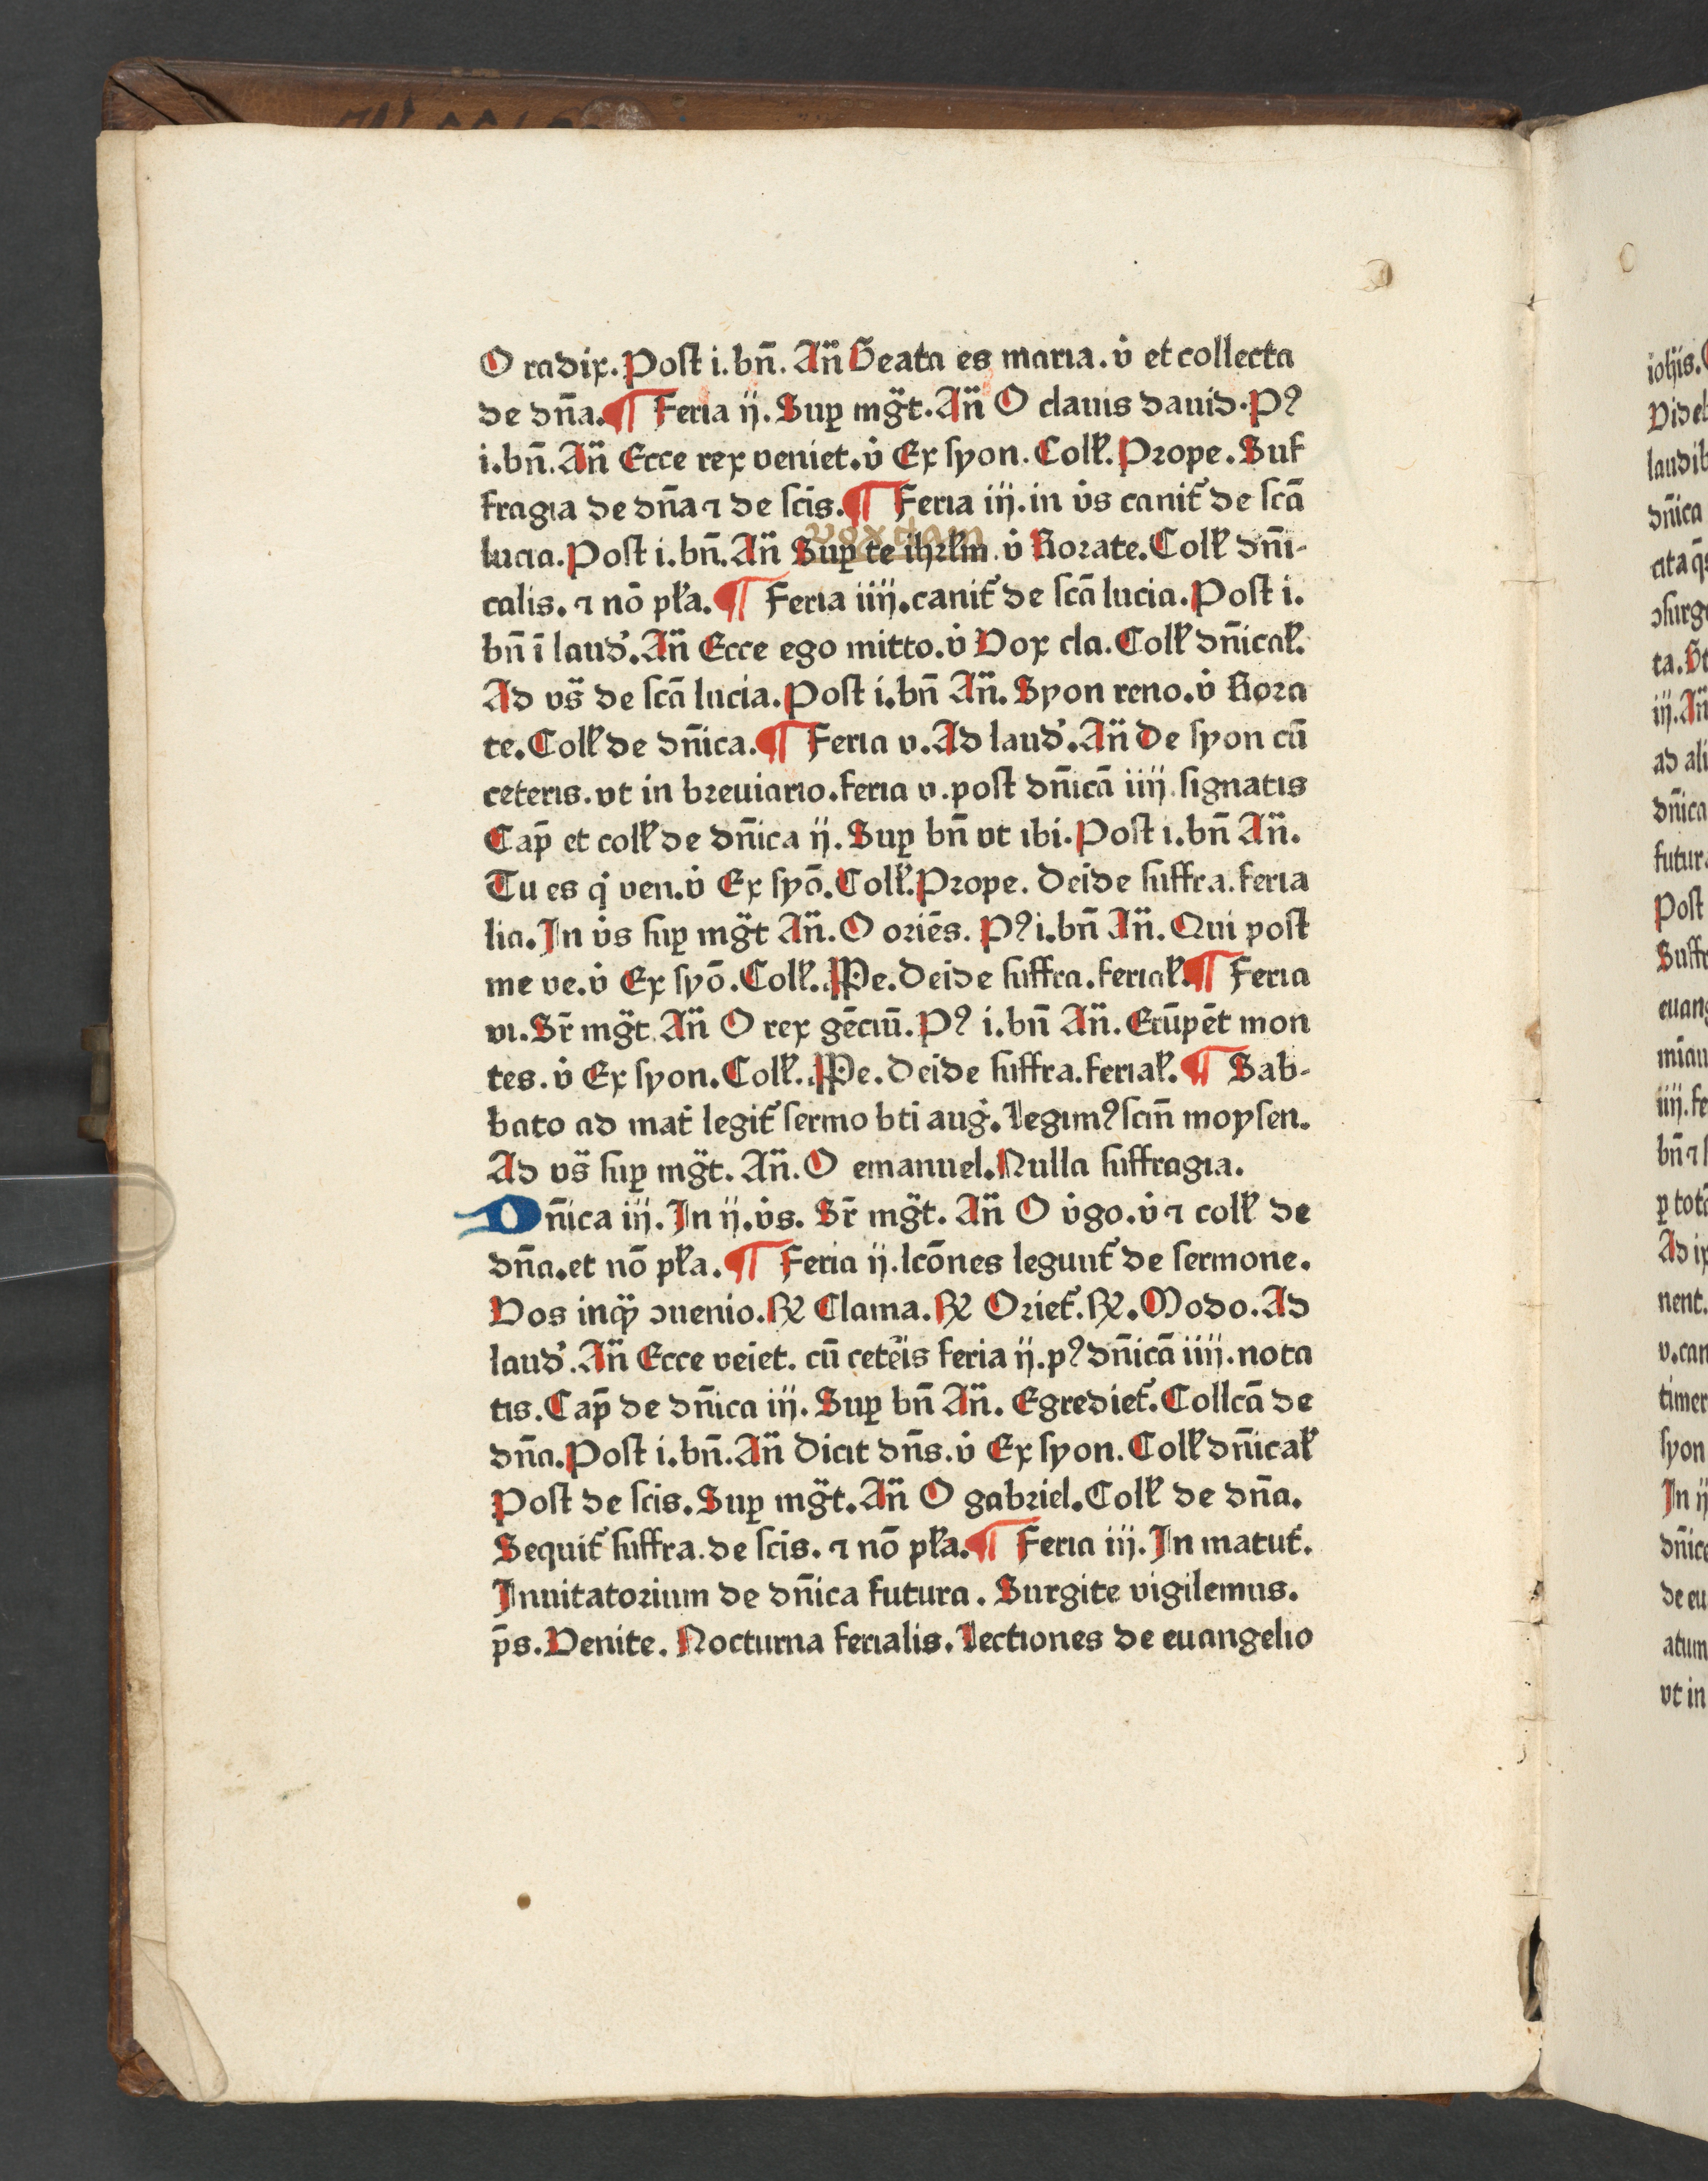 O radix. Post i. bn̄. An̄ Beata es maria. v̇ et collecta
de dn̄a. ¶ Feria ij. Suꝑ mg̈t. An̄ O clauis dauid. Pꝰ
i. bn̄. An̄ Ecce rex veniet. v̇ Ex syon. Coll̉. Prope. Suf
fragia de dn̄a ⁊ de scis. ¶ Feria iij. in v̇s canit̉ de scā
voxdam
lucia. Post i. bn̄. An̄ Suꝑ te ihrl̉m. v̇ Rorate. Coll̉ dn̄i-
calis. ⁊ nō pl̉a. ¶ Feria iiij. canit̉ de scā lucia. Post i.
bn̄ ī laud̉. An̄ Ecce ego mitto. v̇ Vox cla. Coll̉ dn̄ical̉.
Ad vs̈ de scā lucia. Post i. bn̄ An̄. Syon reno. v̇ Rora
te. Coll̉ de dn̄ica. ¶ Feria v. Ad laud̉. An̄ De syon cū
ceteris. vt in breuiario. feria v. post dn̄icā iiij. signatis
Cap̄ et coll̉ de dn̄ica ij. Suꝑ bn̄ vt ibi. Post i. bn̄ An̄.
Tu es q̇ ven. v̇ Ex syō. Coll̉. Prope. Deide suffra. feria
lia. In v̇s suꝑ mg̈t An̄. O oriēs. Pꝰ i. bn̄ An̄. Qui post
me ve. v̇ Ex syō. Coll̉. PPe. Deide suffra. ferial̉. ¶ Feria
vi. Sr̄ mg̈t. An̄ O rex gēciū. Pꝰ i. bn̄ An̄. Erūpēt mon
tes. v̇ Ex syon. Coll̉. PPe. Deide suffra. ferial̉. ¶ Sab-
bato ad mat̉ legit̉ sermo bti aug̉. Legimꝰ scm̄ moysen.
Ad vs̈ suꝑ mg̈t. An̄. O emanuel. Nulla suffragia.
Dn̄ica iij. In ij. v̇s. Sr̄ mg̈t. An̄ O v̇go. v̇ ⁊ coll̉ de
dn̄a. et nō pl̉a. ¶ Feria ij. lcōnes legunt̉ de sermone.
Vos inqꝫ ꝯuenio. ℟ Clama. ℟ Oriet̉. ℟. Modo. Ad
laud̉. An̄ Ecce veiet. cū ceteis feria ij. pꝰ dn̄icā iiij. nota
tis. Cap̄ de dn̄ica iij. Suꝑ bn̄ An̄. Egrediet̉. Collcā de
dn̄a. Post i. bn̄. An̄ Dicit dn̄s. v̇ Ex syon. Coll̉ dn̄ical̉
Post de scis. Suꝑ mg̈t. An̄ O gabriel. Coll̉ de dn̄a.
Sequit̉ suffra. de scis. ⁊ nō pl̉a. ¶ Feria iij. In matut̉.
Inuitatorium de dn̄ica futura. Surgite vigilemus.
p̄s. Venite. Nocturna ferialis. Lectiones de euangelio